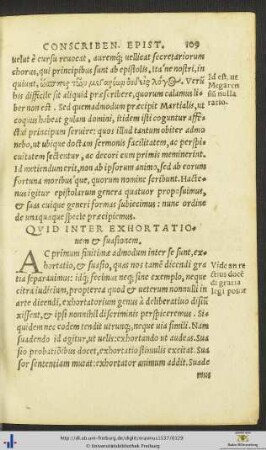 CONSCRIBEN. EPIST. 109
urlut è cursu reuocet, auremq́; uellicet secretariorum
chorus, qui principibus sunt ab epistolis, ita ne nostri, in
quiunt,
bis difficile sit aliquid præscribere, quorum calamus li
ber non est. Sed quemadmodum præcipit Martialis, ut
coquus habeat gulam domini, itidem isti coguntur affec
tui principum seruire: quos illud tantum obiter admo
nebo, ut ubique doctam sermonis facilitatem, ac perspi
cuitatem sectentur, ac decori cum primis meminerint.
Id metiendum erit, non ab ipsorum animo, sed ab eorum
fortuna moribusque, quorum nomine scribunt. Hacte
nus igitur epistolarum genera quatuor proposuimus,
& suas cuique generi formas subiecimus: nunc ordine
de unaquaque specie præcipiemus.
Id est, ut
Megaren
sis nulla
ratio.
QVID INTER EXHORTATIO-
nem & suasionem.
AC primum finitima admodum inter se sunt, ex,
hortatio, & suasio, quas nos tamẽ dicendi gra
tia separauimus: idq́; fecimus neq; sine exemplo, neque
citra iudicium, propterea quod & ueterum nonnulli in
arte dicendi, exhortatorium genus à deliberatiuo disiũ
xissent, & ipsi nonnihil discriminis perspiceremus. Si
quidem nec eodem tendit utrunq;, neque uia simili. Nam
suadendo id agitur, ut uelis: exhortando ut audeas. Sua
sio probatiõibus docet, exhortatio stimulis excitat. Sua
sor sententiam mutat: exhortator animum addit. Suade
mus
Vide an re
ctius docẽ
di gratia
legi possit
http://dl.ub.uni-freiburg.de/diglit/erasmus1537/0129
© Universitätsbibliothek Freiburg